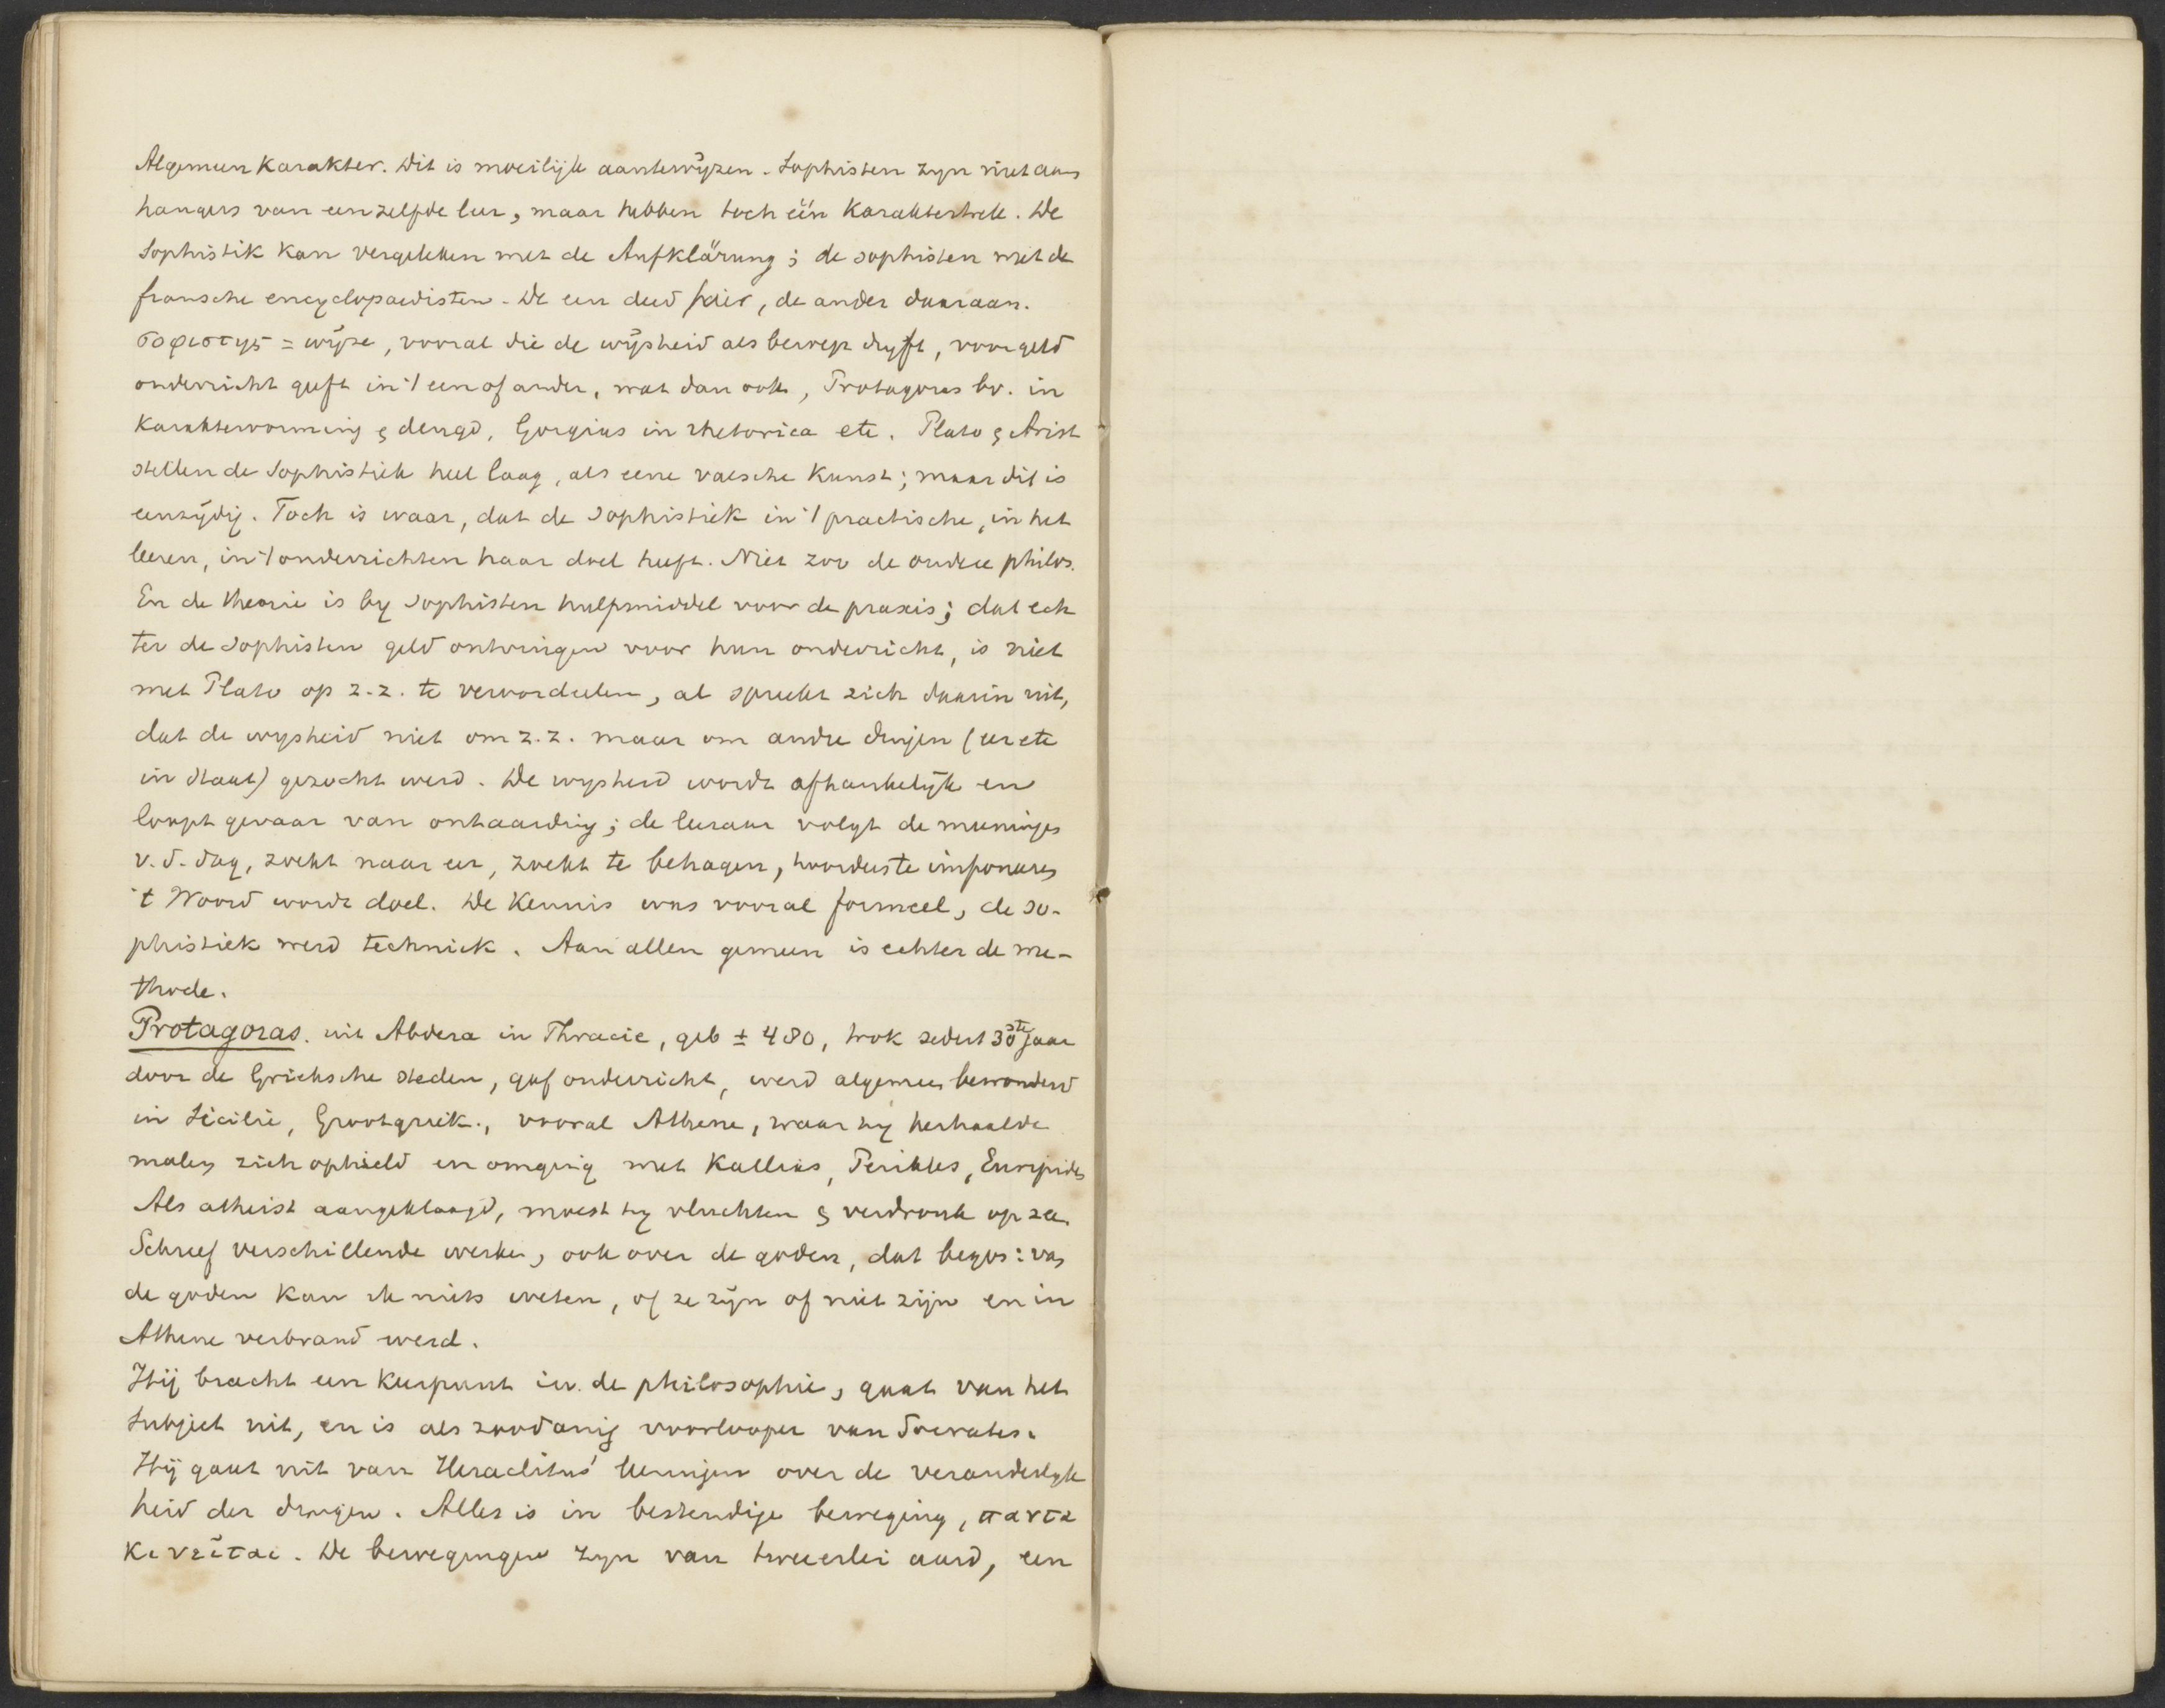 Algemeen Karakter. Dit is moeilijk aantewijzen. Sophisten zyn niet aan
hangers van eenzelfde leer, maar hebben toch één Karaktertrek. De
Sophistik kan vergeleken met de Aufklärung; de sophisten met de
fransche encyclopaedisten. De een deed hier, de ander daaraan.
σοφιστης = wijze, vooral die de wijsheid als beroep dryft, voor geld
onderricht geeft in 't een of ander, wat dan ook, Protagoras bv. in
Karaktervorming & deugd, Gorgias in rhetorica etc. Plato & Arist
stellen de Sophistiek heel laag, als eene valsche Kunst; maar dit is
eenzijdig. Toch is waar, dat de Sophistiek in 't practische, in het
leeren, in 't onderrichten haar doel heeft. Niet zoo de oudere philos.
En de theorie is by Sophisten hulpmiddel voor de praxis; dat ech
ter de Sophisten geld ontvingen voor hun onderricht, is niet
met Plato op z.z. te veroordeelen, al spreekt zich daarin uit,
dat de wysheid niet om z.z. maar om andre dingen (eer etc
in Staat) gezocht werd. De wysheid wordt afhankelijk en
loopt gevaar van ontaarding; de leeraar volgt de meeningen
v.d. dag, zoekt naar eer, zoekt te behagen, hoorders te imponeeren
't Woord wordt doel. De Kennis was vooral formeel, de So-
phistiek werd techniek. Aan allen gemeen is echter de me-
thode.
Protagoras. uit Abdera in Thracie, geb ± 480, trok sedert 30ste jaar
door de Grieksche steden, gaf onderricht, werd algemeen bewonderd
in Sicilië, Grootgriek., vooral Athene, waar hy herhaalde
malen zich ophield en omging met Kallias, Perikles, Euripides
Als atheist aangeklaagd, moest hy vluchten & verdronk op zee.
Schreef verschillende werken, ook over de goden, dat begon: van
de goden kan ik niets weten, of ze zijn of niet zijn en in
Athene verbrand werd.
Hij bracht een keerpunt in de philosophie, gaat van het
Subject uit, en is als zoodanig voorlooper van Socrates.
Hij gaat uit van Heraclitus' leeringen over de veranderlyk
heid der dingen. Alles is in bestendige beweging, παντα
κινεῖται. De bewegingen zyn van tweeerlei aard, een